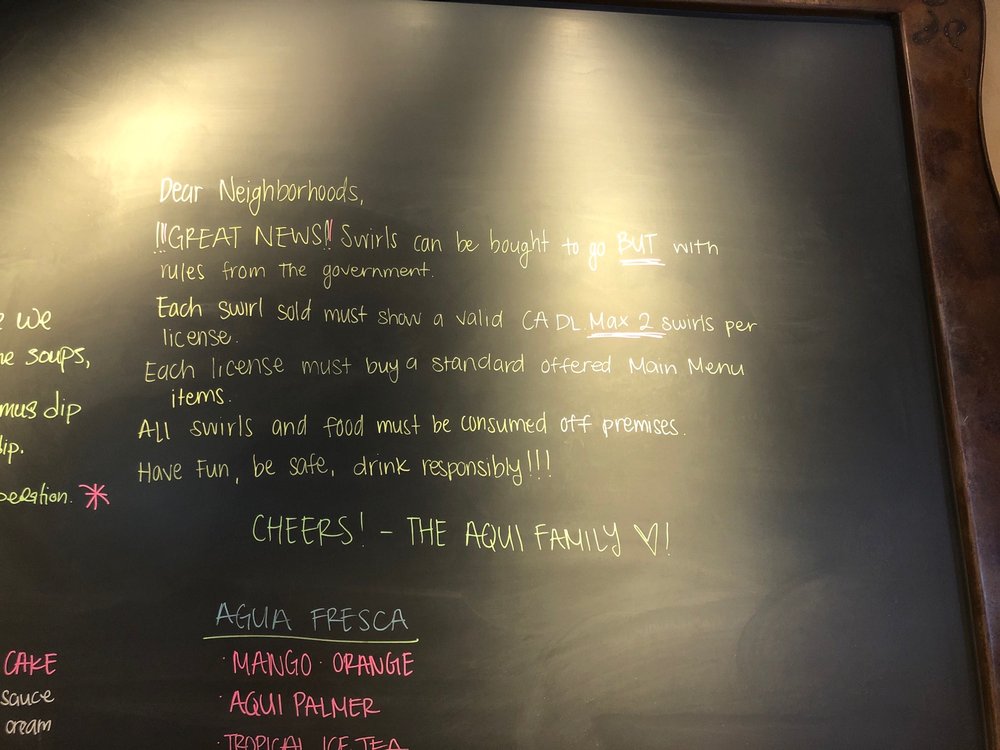 Dear Neighborhoods,
!!!GREAT NEWS!! Swirls can be bought to go BUT with
rules from the government.
Each swirl sold must show a valid CA DL. Max 2 swirls per
license.
Each license must buy a standard offered Main Menu
items.
All swirls and food must be consumed off premises.
Have Fun, be safe, drink responsibly!!!
CHEERS! - THE AQUI FAMILY ♡!
we
soups,
dip
*
AGUA FRESCA
· MANGO · ORANGE
· AQUI PALMER
· TROPICAL ICE TEA
CAKE
sauce
cream